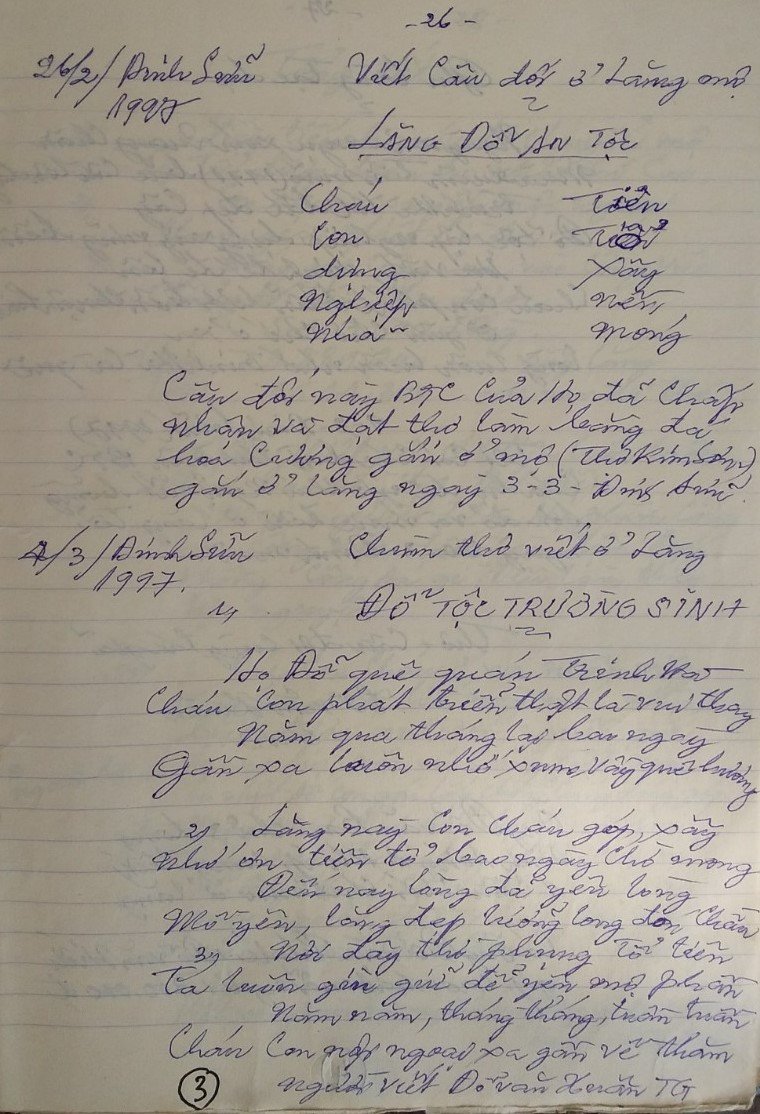 - 26 -
26/2/ Đinh Sửu Viết Câu đối ở Lăng mộ
1997
LĂNG ĐỖ AN TỘC
Cháu Tiên
Con Tổ
dựng xây
Nghiệp nền
Nhà móng
Câu đối này BTC Của Họ đã chấp
nhận và đặt thơ làm bằng đá
hoa Cương gắn ở mộ (Thơ Kim Sơn)
gắn ở lăng ngày 3-3- Đinh Sửu
4/3/ Đinh Sửu Chùm thơ viết ở Lăng
1997.
1, ĐỖ TỘC TRƯỜNG SINH
Họ Đỗ quê quán Trinh
Cháu Con phát triển thật là vui thay
Năm qua tháng lại bao ngày
Gần xa luôn nhớ xum vầy quê hương
2, Lăng nay Con Cháu góp xây
Nhớ ơn tiên tổ bao ngày chờ mong
Đến nay lòng đã yên lòng
Mộ yên, lăng đẹp hướng long đón Chân
3, Nơi đây thờ phụng Tổ tiên
Ta luôn gìn giữ để yên mộ phần
Năm năm, tháng tháng, tuần tuần
Cháu Con nội ngoại xa gần về thăm
người viết Đỗ văn Xuân TG
3